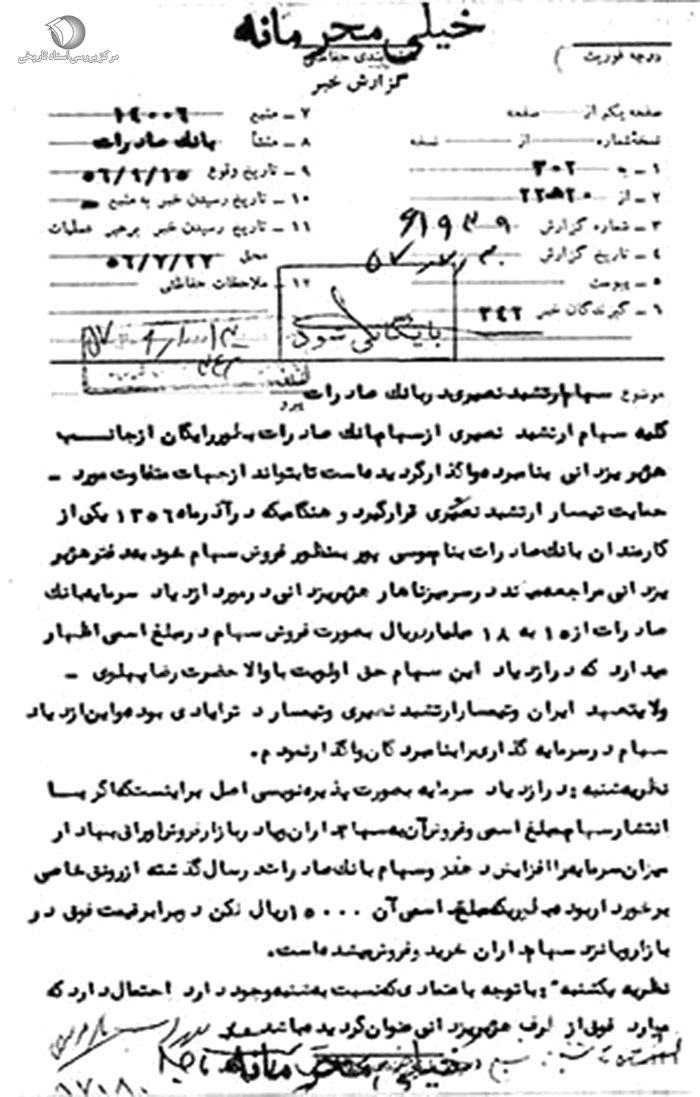 مرکز بررسی اسناد تاریخی
خیلی محرمانه
درجه فوریت
طبقه بندی حفاظتی
گزارش خبر
صفحه یکم از صفحه
۷ ـ منبع ۱۴۰۰۶
نسخه شماره از نسخه
۸ ـ منشأ بانك صادرات
۱ ـ به ۳۰۲
۹ ـ تاریخ وقوع
۲ ـ از ۲۲ه۲۰
۱۰ ـ تاریخ رسیدن خبر به منبع
۳ ـ شماره گزارش
۱۱ ـ تاریخ رسیدن خبر برهبر عملیات
۴ ـ تاریخ گزارش
محل ۵۶/۷/۲۷
۵ ـ پیوست
۱۲ ـ ملاحظات حفاظتی
۶ ـ گیرندگان خبر ۳۴۲
بایگانی شود
موضوع سهام ارتشبد نصیری در بانك صادرات
پیرو
کلیه سهام ارتشبد نصیری از سهام بانك صادرات بطور رایگان از جانب
هژبر یزدانی بنامبرده واگذار گردیده است تا بتواند از جهات متفاوت مورد ـ
حمایت تیمسار ارتشبد نصیری قرار گیرد و هنگامیکه در آذرماه ۱۳۵۶ یکی از
کارمندان بانك صادرات بنام پور بمنظور فروش سهام خود بدفتر هژبر
یزدانی مراجعه میکند در سر میز ناهار هژبر یزدانی در مورد ازدیاد سرمایه بانك
صادرات از ۱۵ به ۱۸ میلیارد ریال بصورت فروش سهام در مبلغ اسمی اظهار
میدارد که در ازدیاد این سهام حق اولویت با والاحضرت رضا پهلوی ـ
ولایتعهد ایران و تیمسار ارتشبد نصیری و تیمسار بوده و این ازدیاد
سهام در سرمایه گذاری را بنامبردگان واگذار نمودم.
نظریه شنبه : در ازدیاد سرمایه بصورت پذیره نویسی اصل بر اینست که اگر با
انتشار سهام بمبلغ اسمی و فروش آن به سهامداران و یا در بازار فروش اوراق بهادار
میزان سرمایه را افزایش دهند و سهام بانك صادرات در سال گذشته از رونق خاصی
برخوردار بوده بطوریکه مبلغ اسمی آن ۱۵۰۰۰ ریال لکن دو برابر قیمت فوق در
بازار و یا نزد سهامداران خرید و فروش میشده است.
نظریه یکشنبه : با توجه باعتمادی که نسبت به شنبه وجود دارد احتمال دارد که
موارد فوق از طرف هژبر یزدانی عنوان گردیده باشد
خیلی محرمانه